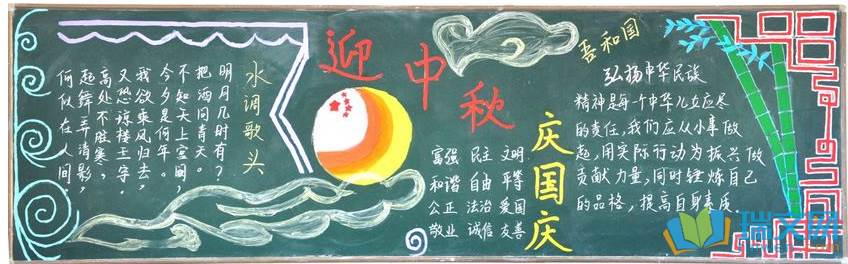 水调歌头
明月几时有？
把酒问青天。
不知天上宫阙，
今夕是何年。
我欲乘风归去，
又恐琼楼玉宇。
高处不胜寒，
起舞弄清影，
何似在人间
迎中秋
庆国庆
富强 民主 文明
和谐 自由 平等
公正 法治 爱国
敬业 诚信 友善
吾和国
弘扬中华民族
精神是每个中华儿女应尽
的责任，我们应从小事做
起，用实际行动为振兴做
贡献力量，同时锤炼自己
的品格，提高自身素质
瑞文网